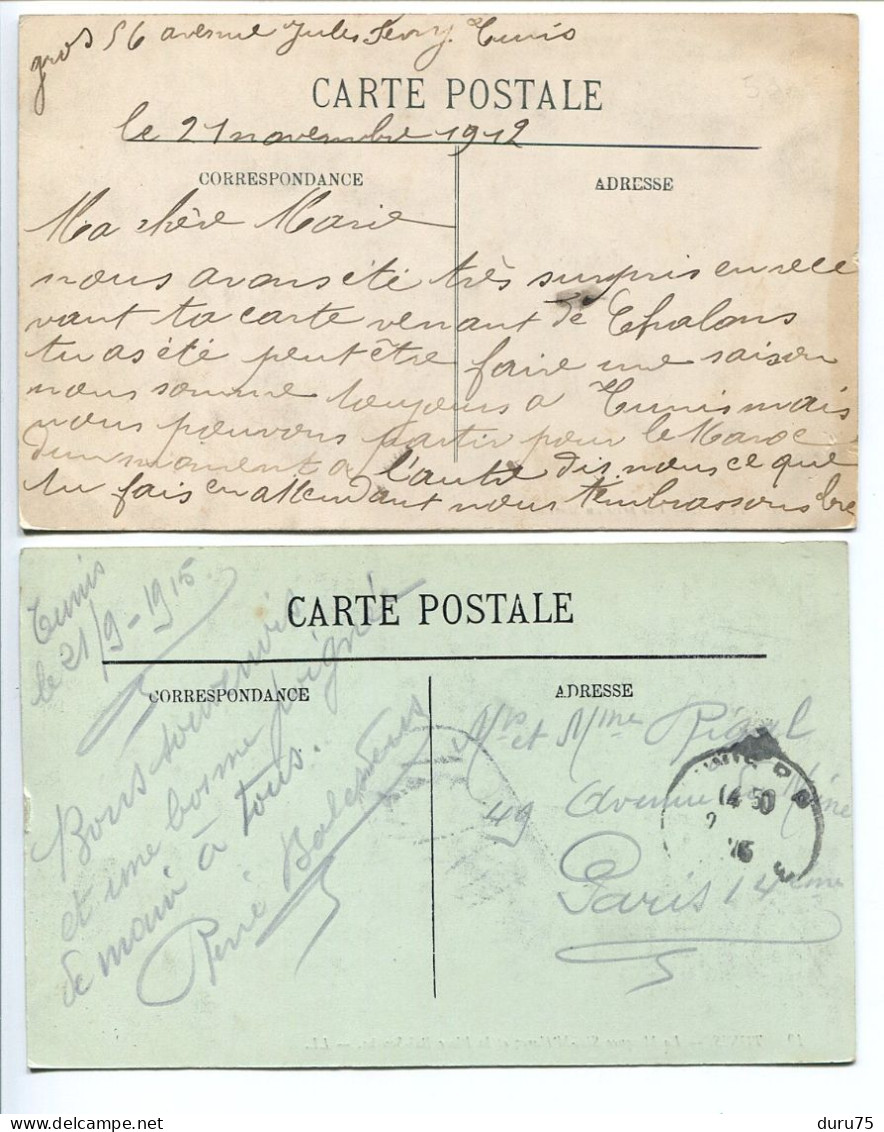 gros 56 avenue Jules Ferry Tunis
CARTE POSTALE
le 21 novembre 1912
CORRESPONDANCE
ADRESSE
Ma chère Marie
nous avons été très surpris en rece
vant ta carte venant de Chalons
tu as été peut être faire une saison
nous somme toujours a Tunis mais
nous pouvons partir pour le Maroc
dun moment a l'autre dis nous ce que
tu fais en attendant nous t'embrassons bre
Tunis
le 21/9-1915
CARTE POSTALE
CORRESPONDANCE
ADRESSE
Bons souvenirs
et une bonne poignée
de main à tous.
René
Mr et Mme
49 Avenue du Maine
Paris 14ème
14 50
15
duru75